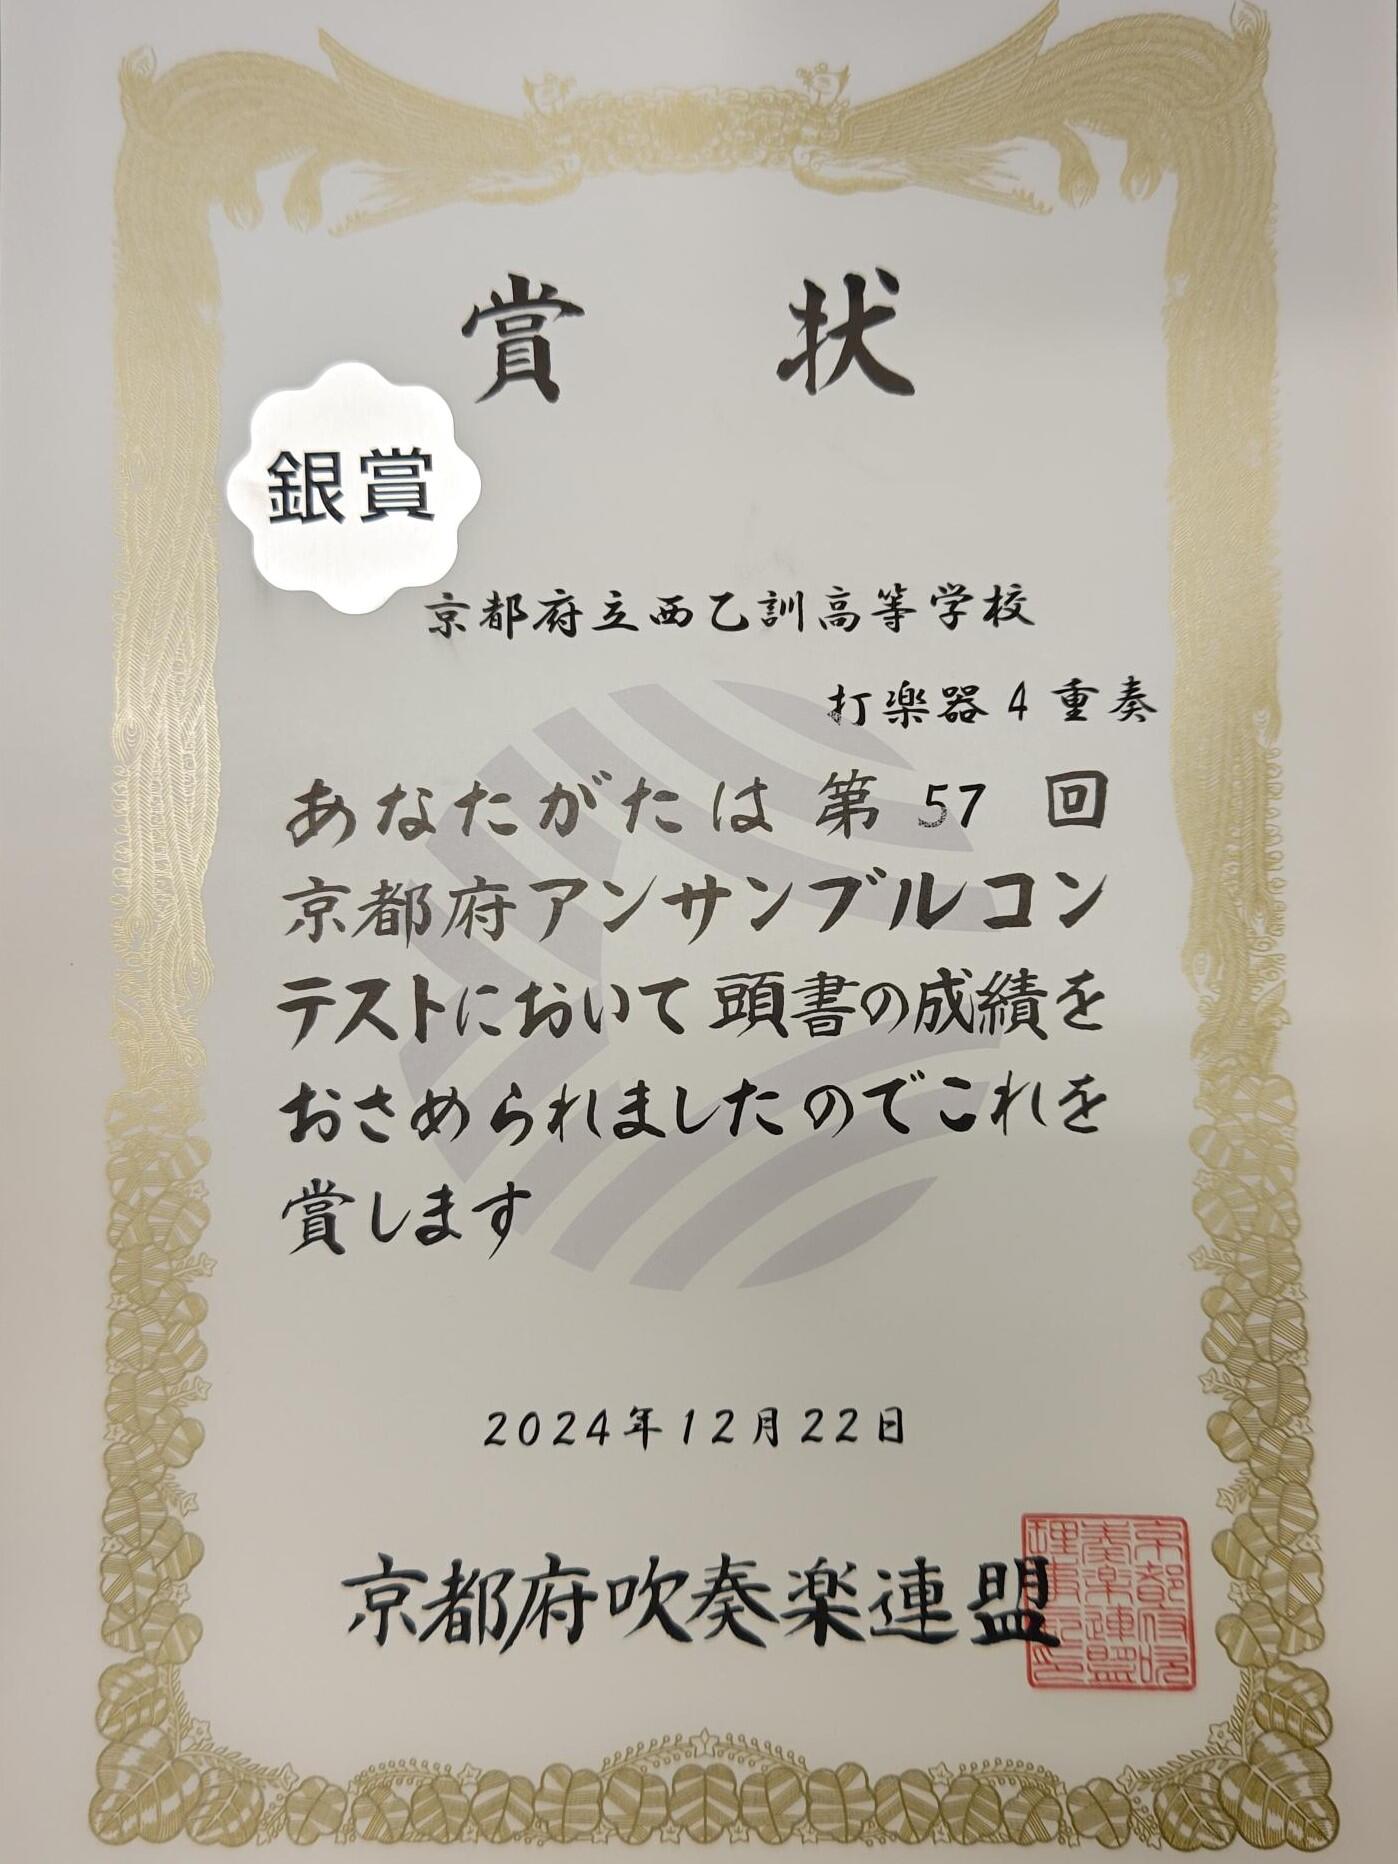 賞状
銀賞
京都府立西乙訓高等学校
打楽器4重奏
あなたがたは第57回
京都府アンサンブルコン
テストにおいて頭書の成績を
おさめられましたのでこれを
賞します
2024年12月22日
京都府吹奏楽連盟